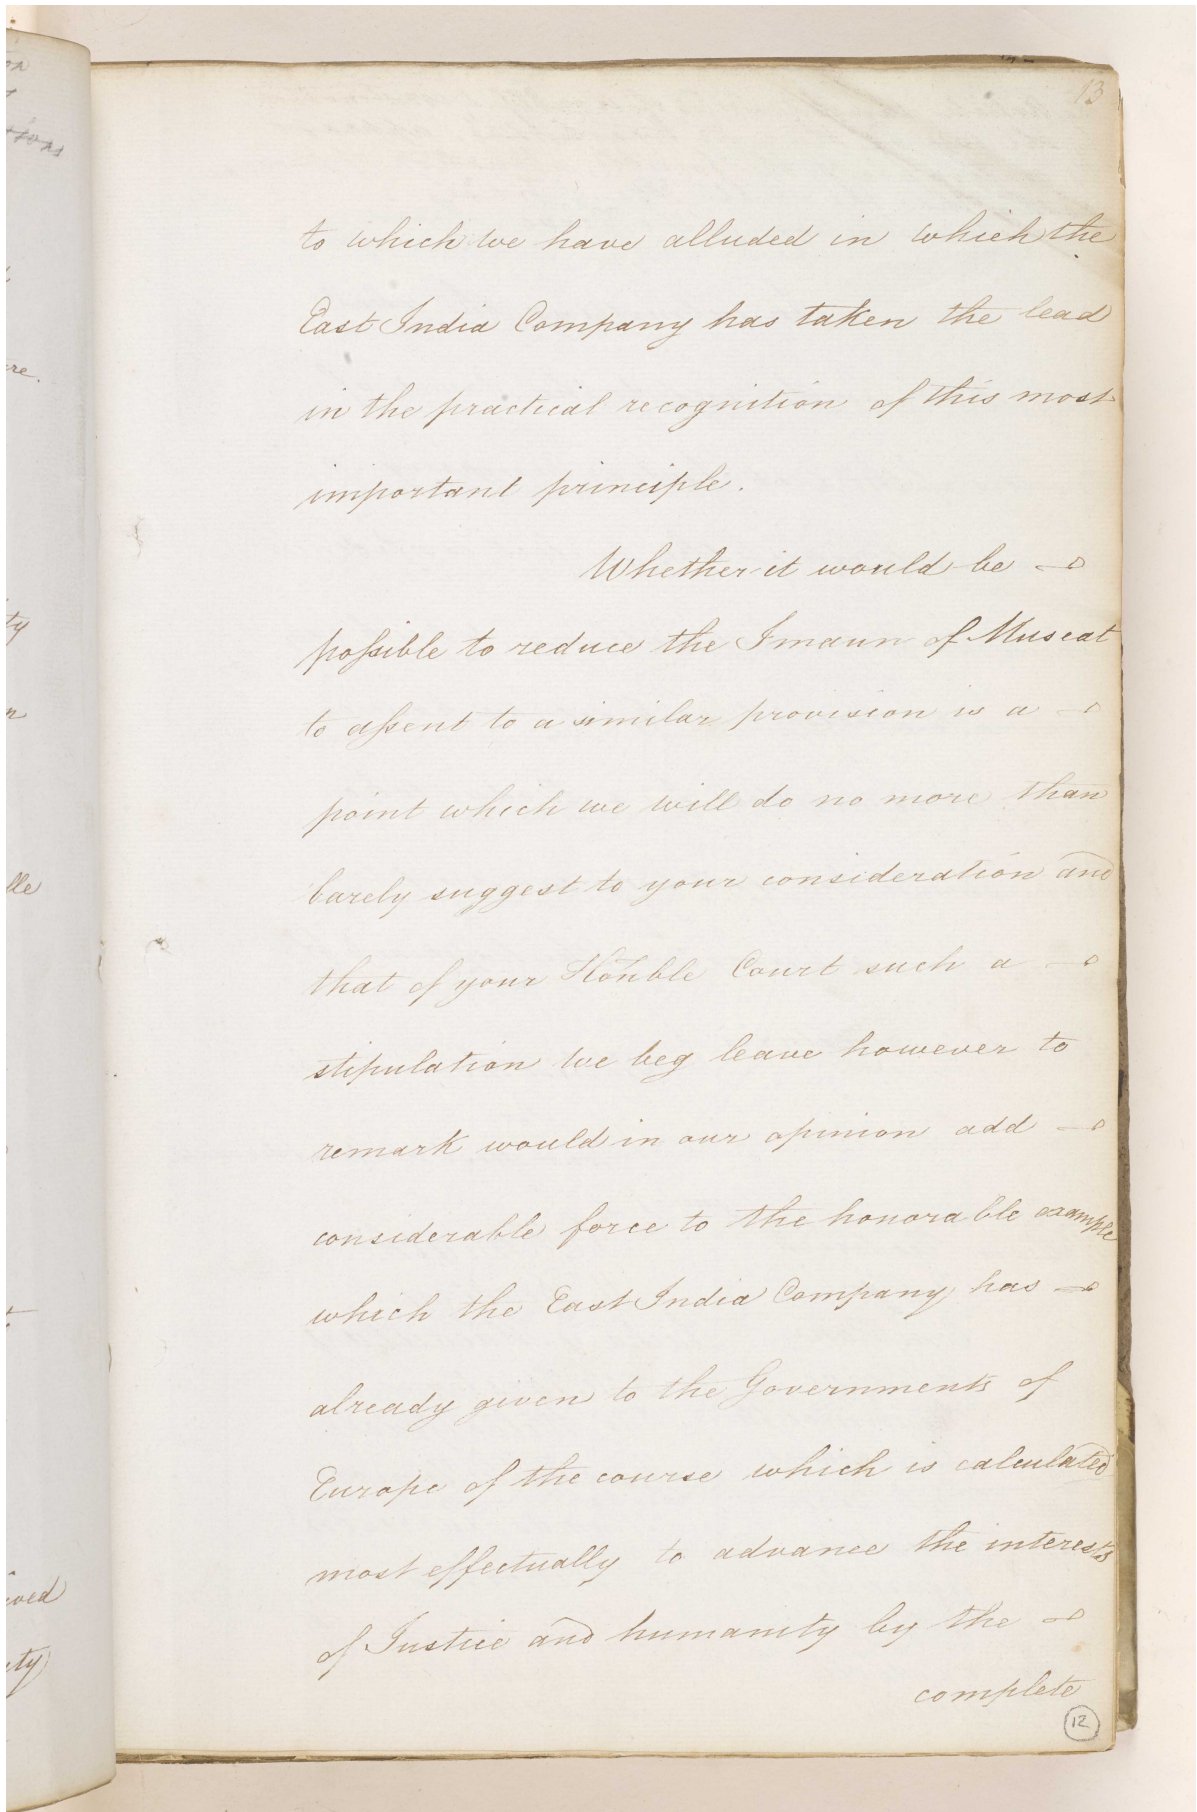 13
to which we have alluded in which the
East India Company has taken the lead
in the practical recognition of this most
important principle.
Whether it would be
possible to reduce the Imaun of Muscat
to assent to a similar provision is a
point which we will do no more than
barely suggest to your consideration and
that of your Honble Court such a
stipulation we beg leave however to
remark would in our opinion add
considerable force to the honorable example
which the East India Company has
already given to the Governments of
Europe of the course which is calculated
most effectually to advance the interests
of Justice and humanity by the
complete
12